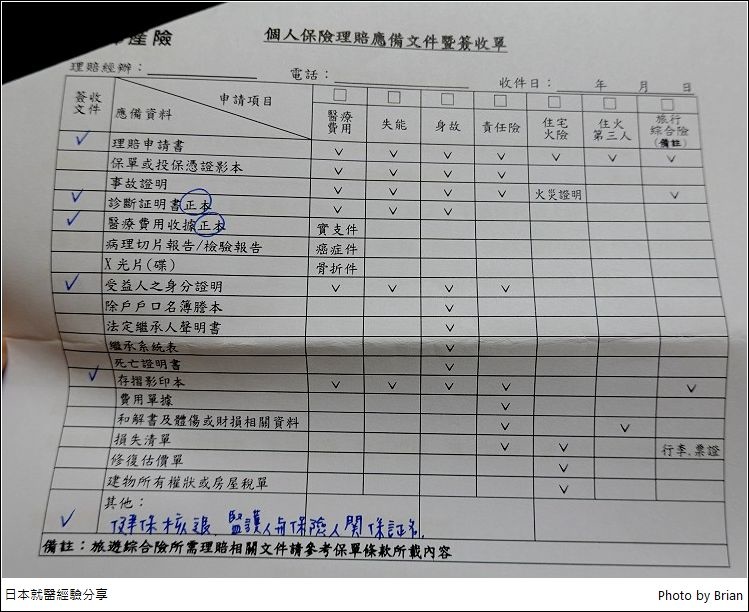 產險
個人保險理賠應備文件暨簽收單
理賠經辦： 電話： 收件日： 年 月 日
簽收文件 申請項目 應備資料 □ 醫療費用 □ 失能 □ 身故 □ 責任險 □ 住宅火險 □ 住火第三人 □ 旅行綜合險(備註)
✓ 理賠申請書 ∨ ∨ ∨ ∨ ∨ ∨ ∨
保單或投保憑證影本 ∨ ∨ ∨ ∨
事故證明 ∨ ∨ ∨ ∨ 火災證明 ∨
✓ 診斷証明書正本 ∨ ∨ ∨
✓ 醫療費用收據正本 實支件
病理切片報告/檢驗報告 癌症件
X光片(碟) 骨折件
✓ 受益人之身分證明 ∨ ∨ ∨ ∨
除戶戶口名簿謄本 ∨
法定繼承人聲明書 ∨
繼承系統表 ∨
死亡證明書 ∨
✓ 存摺影印本 ∨ ∨ ∨ ∨ ∨
費用單據 ∨
和解書及體傷或財損相關資料 ∨ ∨
損失清單 ∨ ∨ 行李、票證
修復估價單 ∨
建物所有權狀或房屋稅單 ∨
其他：
✓ 健保核退、監護人與保險人関係証名
備註：旅遊綜合險所需理賠相關文件請參考保單條款所載內容
日本就醫經驗分享 Photo by Brian